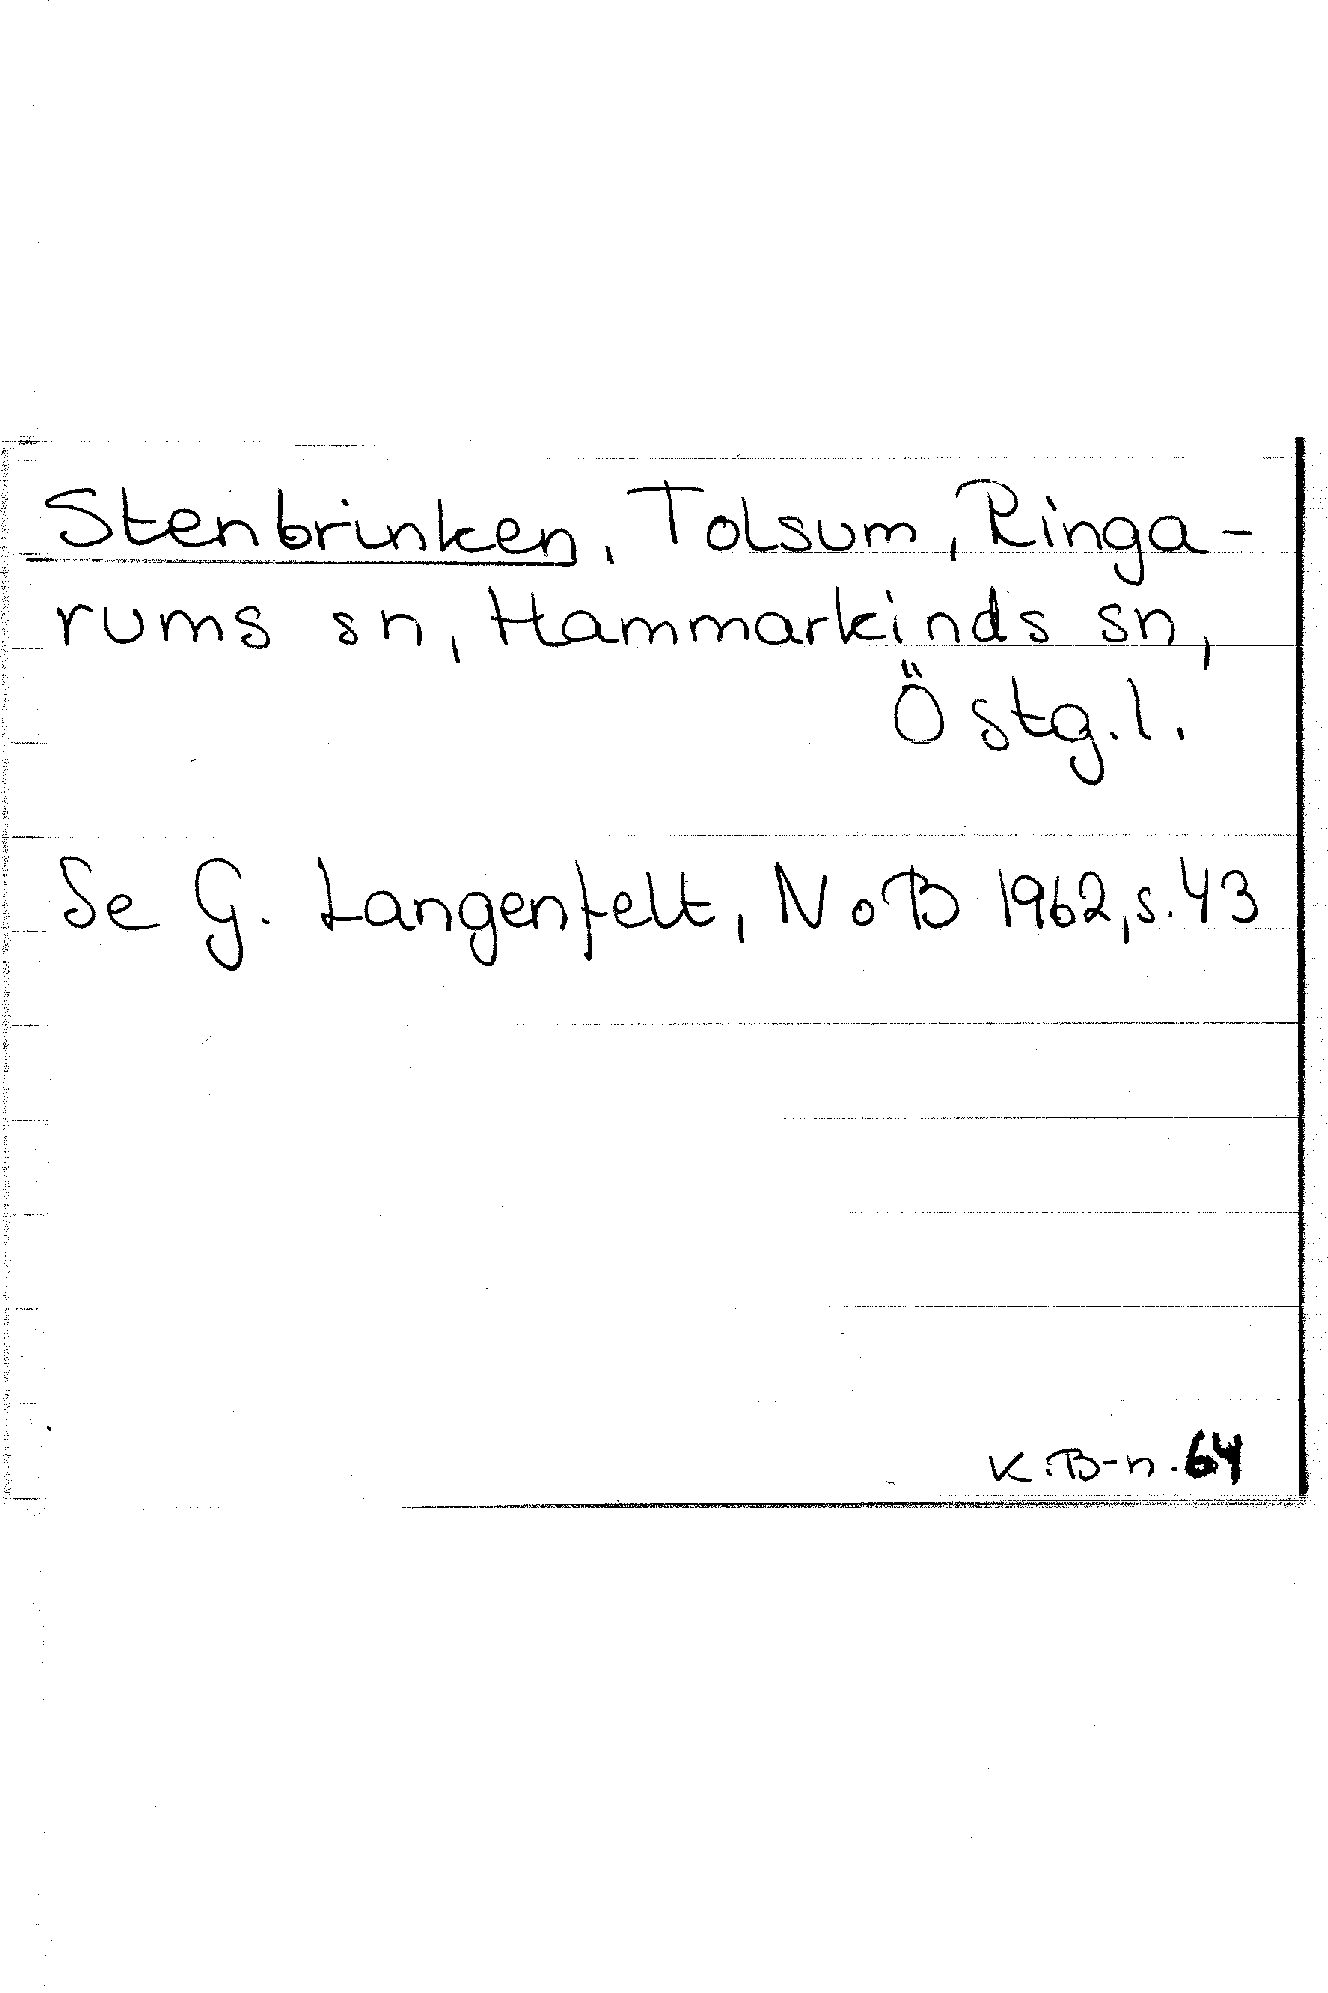 Stenbrinken, Tolsum, Ringa-
rums sn, Hammarkinds sn,
Östg.l.
Se G. Langenfelt, NoB 1962, s. 43
K.B-n. 64